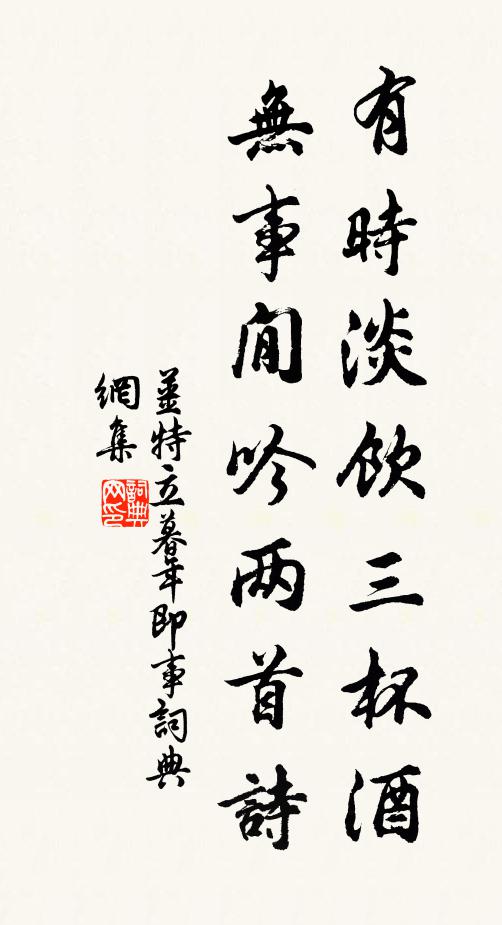 有時淡飲三杯酒
無事閒吟两首詩
姜特立暮年即事詞典
網集
詞典网印